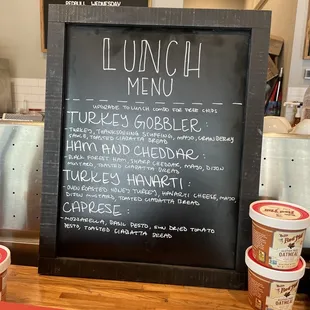 REDBULL WEDNESDAY
LUNCH
MENU
UPGRADE TO LUNCH COMBO FOR FREE CHIPS
TURKEY GOBBLER :
- TURKEY, THANKSGIVING STUFFING, MAYO, CRANBERRY
SAUCE, TOASTED CIABATTA BREAD
HAM AND CHEDDAR :
- BLACK FOREST HAM, SHARP CHEDDAR, MAYO, DIJON
MUSTARD, TOASTED CIABATTA BREAD
TURKEY HAVARTI :
- OVEN ROASTED HONEY TURKEY, HAVARTI CHEESE, MAYO,
DIJON MUSTARD, TOASTED CIABATTA BREAD
CAPRESE :
- MOZZARELLA, BASIL PESTO, SUN DRIED TOMATO
PESTO, TOASTED CIABATTA
BREAD
Bob's
Red Mill
OATMEAL
Bob's
Red Mill
OATMEAL